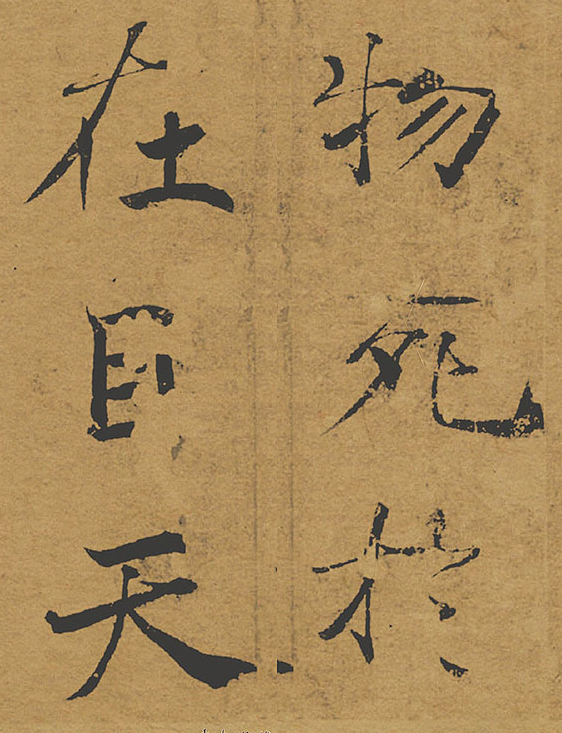 物死於
在目天